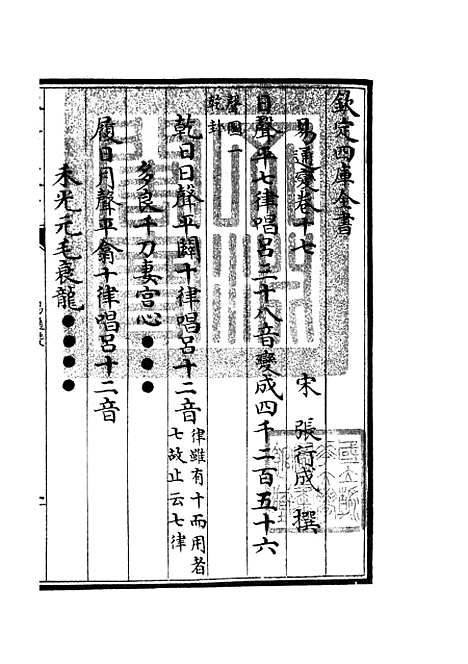 欽定四庫全書
易通變卷十七
宋 張行成 撰
日聲平七律唱呂三十八音變成四千二百五十六
聲圖一
乾卦
乾日日聲平闢十律唱呂十二音律雖有十而用者
七故止云七律
多良千刀妻宮心●●●
履日月聲平翕十律唱呂十二音
禾光元毛衰龍●●●●